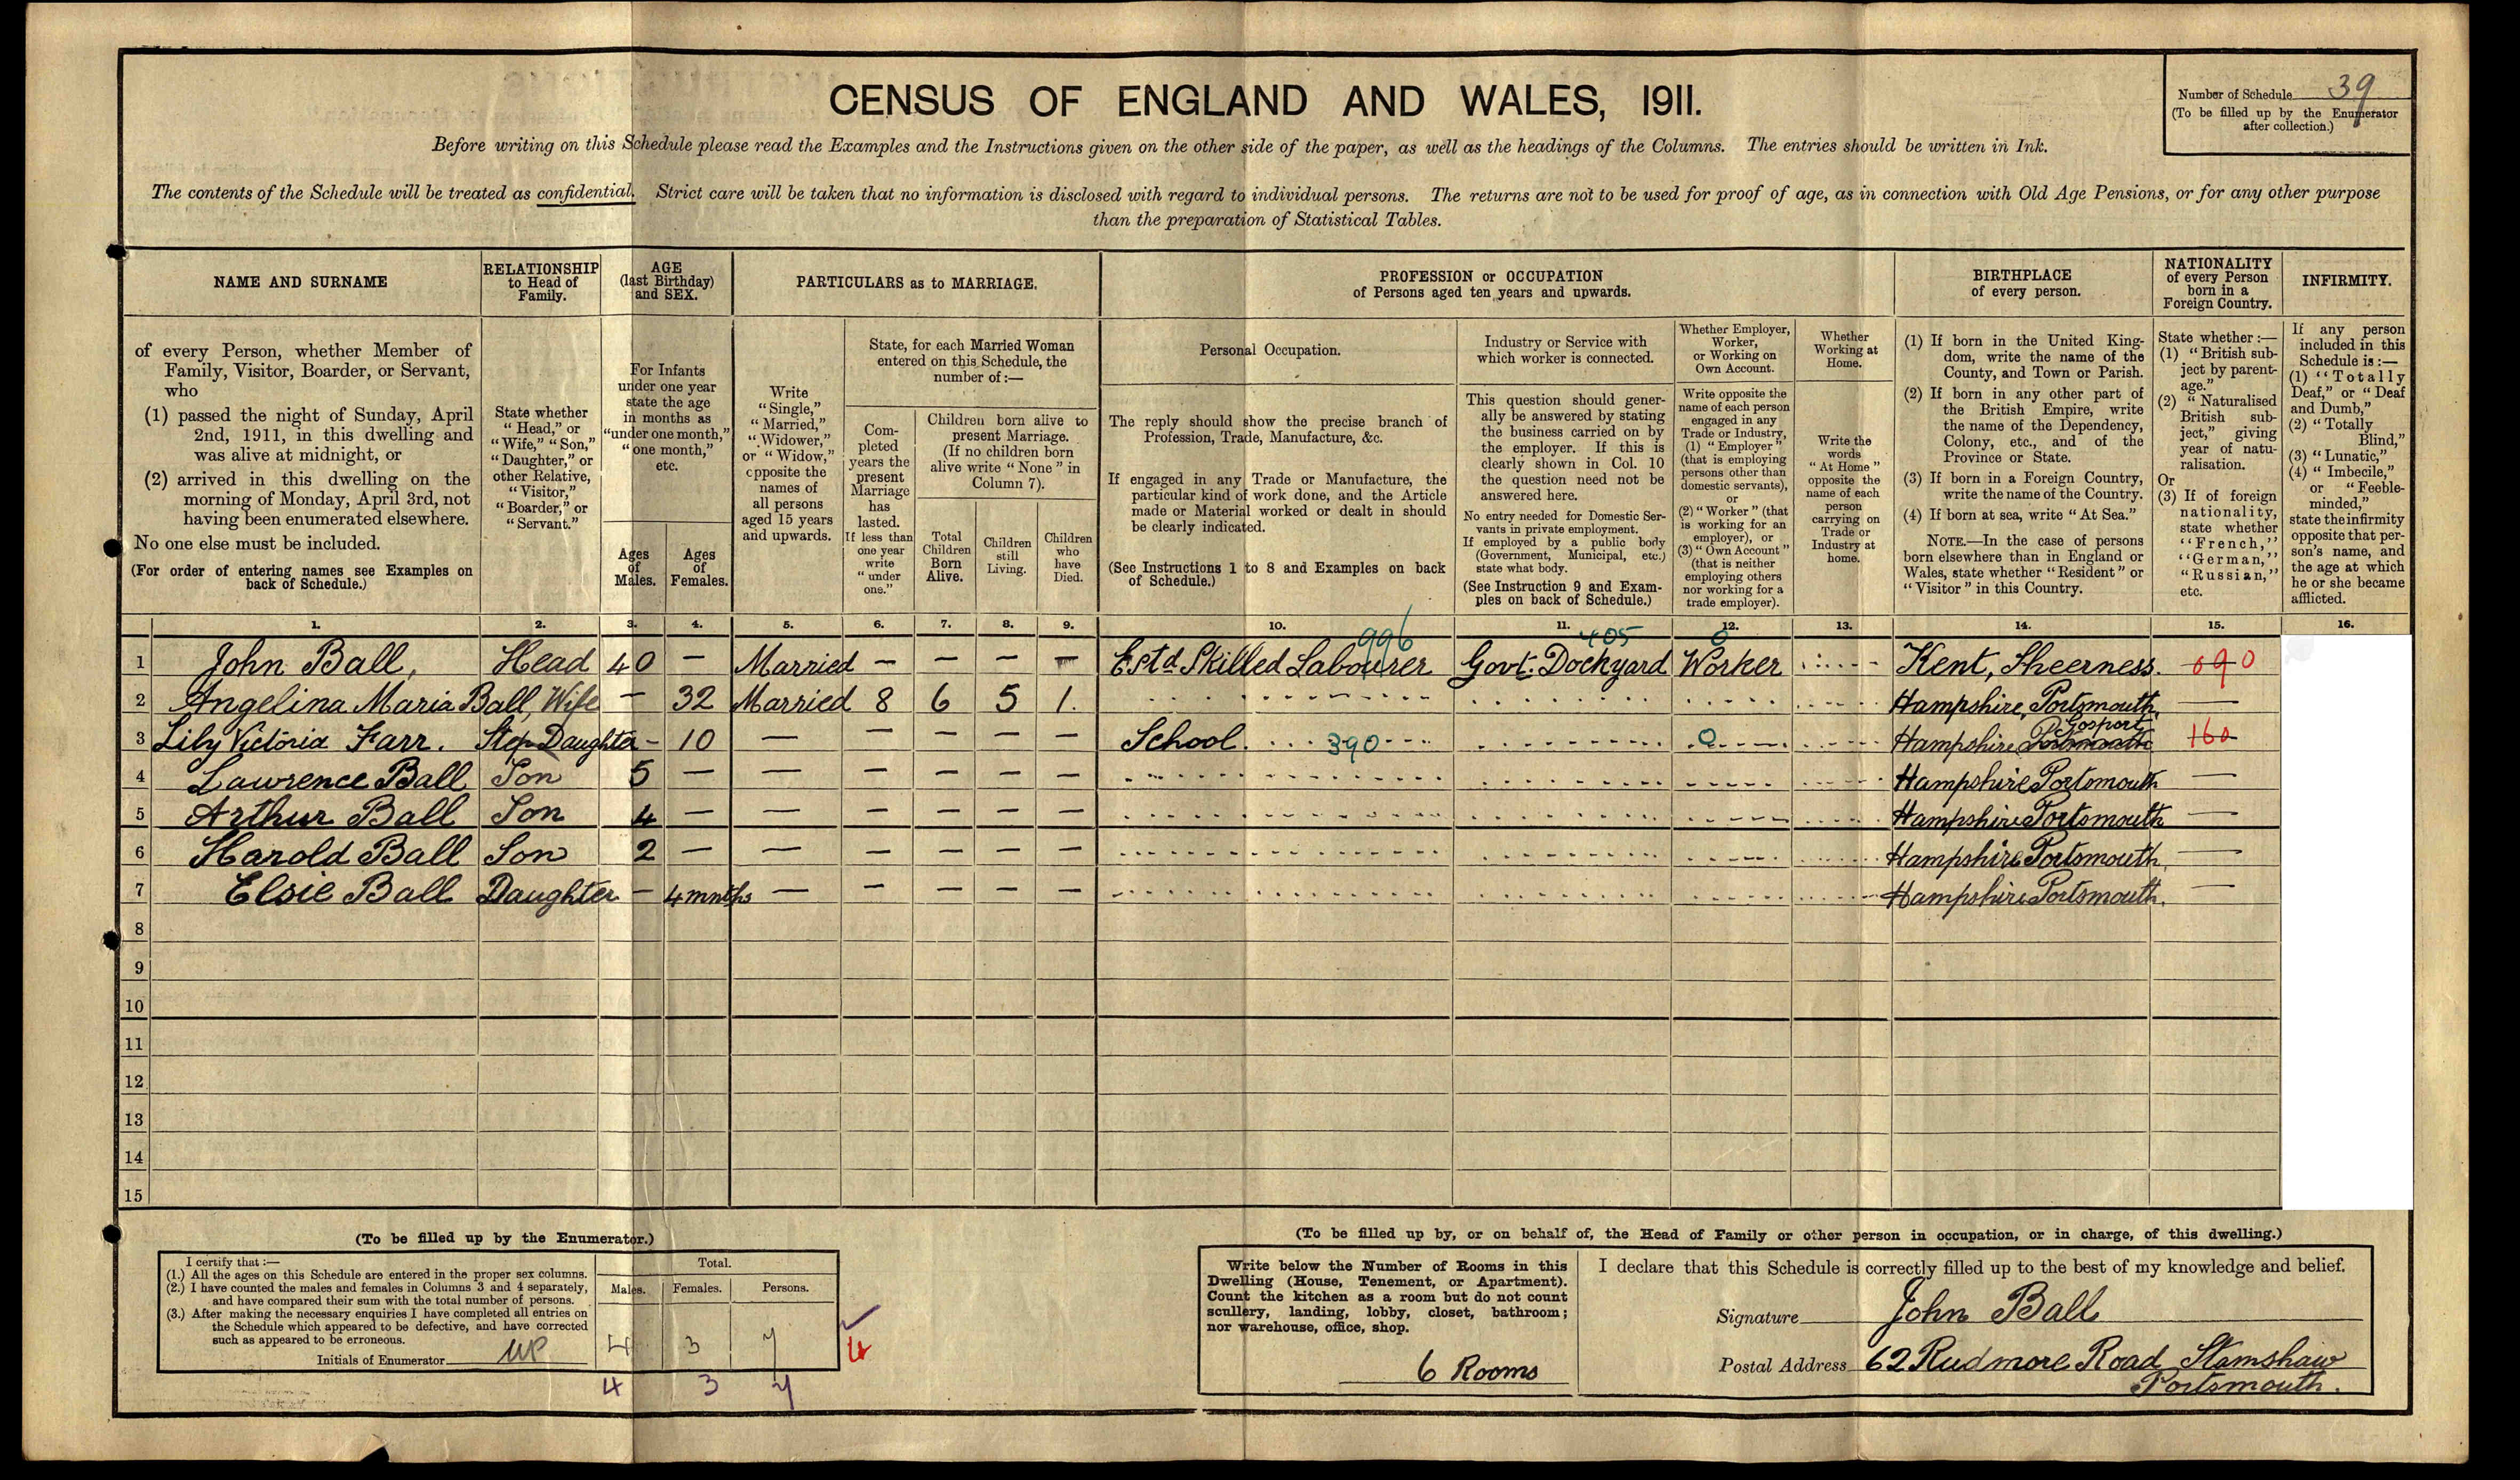 CENSUS OF ENGLAND AND WALES, 1911.
Number of Schedule 39
(To be filled up by the Enumerator
after collection.)
Before writing on this Schedule please read the Examples and the Instructions given on the other side of the paper, as well as the headings of the Columns. The entries should be written in Ink.
The contents of the Schedule will be treated as confidential. Strict care will be taken that no information is disclosed with regard to individual persons. The returns are not to be used for proof of age, as in connection with Old Age Pensions, or for any other purpose
than the preparation of Statistical Tables.
NAME AND SURNAME
of every Person, whether Member of
Family, Visitor, Boarder, or Servant,
who
(1) passed the night of Sunday, April
2nd, 1911, in this dwelling and
was alive at midnight, or
(2) arrived in this dwelling on the
morning of Monday, April 3rd, not
having been enumerated elsewhere.
No one else must be included.
(For order of entering names see Examples on
back of Schedule.)
RELATIONSHIP
to Head of
Family.
State whether
"Head," or
"Wife," "Son,"
"Daughter," or
other Relative,
"Visitor,"
"Boarder," or
"Servant."
AGE
(last Birthday)
and SEX.
For Infants
under one year
state the age
in months as
"under one month,"
"one month,"
etc.
Ages
of
Males.
Ages
of
Females.
PARTICULARS as to MARRIAGE.
Write
"Single,"
"Married,"
"Widower,"
or "Widow,"
opposite the
names of
all persons
aged 15 years
and upwards.
State, for each Married Woman
entered on this Schedule, the
number of:—
Com-
pleted
years the
present
Marriage
has
lasted.
If less than
one year
write
"under
one."
Children born alive to
present Marriage.
(If no children born
alive write "None" in
Column 7).
Total
Children
Born
Alive.
Children
still
Living.
Children
who
have
Died.
PROFESSION or OCCUPATION
of Persons aged ten years and upwards.
Personal Occupation.
The reply should show the precise branch of
Profession, Trade, Manufacture, &c.
If engaged in any Trade or Manufacture, the
particular kind of work done, and the Article
made or Material worked or dealt in should
be clearly indicated.
(See Instructions 1 to 8 and Examples on back
of Schedule.)
Industry or Service with
which worker is connected.
This question should gener-
ally be answered by stating
the business carried on by
the employer. If this is
clearly shown in Col. 10
the question need not be
answered here.
No entry needed for Domestic Ser-
vants in private employment.
If employed by a public body
(Government, Municipal, etc.)
state what body.
(See Instruction 9 and Exam-
ples on back of Schedule.)
Whether Employer,
Worker,
or Working on
Own Account.
Write opposite the
name of each person
engaged in any
Trade or Industry,
(1) "Employer"
(that is employing
persons other than
domestic servants),
or
(2) "Worker" (that
is working for an
employer), or
(3) "Own Account"
(that is neither
employing others
nor working for a
trade employer).
Whether
Working at
Home.
Write the
words
"At Home"
opposite the
name of each
person
carrying on
Trade or
Industry at
home.
BIRTHPLACE
of every person.
(1) If born in the United King-
dom, write the name of the
County, and Town or Parish.
(2) If born in any other part of
the British Empire, write
the name of the Dependency,
Colony, etc., and of the
Province or State.
(3) If born in a Foreign Country,
write the name of the Country.
(4) If born at sea, write "At Sea."
NOTE.—In the case of persons
born elsewhere than in England or
Wales, state whether "Resident" or
"Visitor" in this Country.
NATIONALITY
of every Person
born in a
Foreign Country.
State whether:—
(1) "British sub-
ject by parent-
age."
(2) "Naturalised
British sub-
ject," giving
year of natu-
ralisation.
Or
(3) If of foreign
nationality,
state whether
"French,"
"German,"
"Russian,"
etc.
INFIRMITY.
If any person
included in this
Schedule is:—
(1) "Totally
Deaf," or "Deaf
and Dumb,"
(2) "Totally
Blind,"
(3) "Lunatic,"
(4) "Imbecile,"
or "Feeble-
minded,"
state the infirmity
opposite that per-
son's name, and
the age at which
he or she became
afflicted.
1. 2. 3. 4. 5. 6. 7. 8. 9. 10. 11. 12. 13. 14. 15. 16.
996 405 0
1 John Ball, Head 40 — Married — — — — Estd Skilled Labourer Govt: Dockyard Worker Kent, Sheerness. 090
2 Angelina Maria Ball, Wife — 32 Married 8 6 5 1. Hampshire, Portsmouth, —
Gosport
3 Lily Victoria Farr. Step Daughter — 10 — — — — — School. 390 0 Hampshire Portsmouth 160
4 Lawrence Ball Son 5 — — — — — — Hampshire Portsmouth —
5 Arthur Ball Son 4 — — — — — — Hampshire Portsmouth —
6 Harold Ball Son 2 — — — — — — Hampshire Portsmouth, —
7 Elsie Ball Daughter — 4 mnths — — — — — Hampshire Portsmouth. —
8
9
10
11
12
13
14
15
(To be filled up by the Enumerator.)
I certify that:—
(1.) All the ages on this Schedule are entered in the proper sex columns.
(2.) I have counted the males and females in Columns 3 and 4 separately,
and have compared their sum with the total number of persons.
(3.) After making the necessary enquiries I have completed all entries on
the Schedule which appeared to be defective, and have corrected
such as appeared to be erroneous.
Initials of Enumerator
Total.
Males. Females. Persons.
4 3 7
4 3 7
4
(To be filled up by, or on behalf of, the Head of Family or other person in occupation, or in charge, of this dwelling.)
Write below the Number of Rooms in this
Dwelling (House, Tenement, or Apartment).
Count the kitchen as a room but do not count
scullery, landing, lobby, closet, bathroom;
nor warehouse, office, shop.
6 Rooms
I declare that this Schedule is correctly filled up to the best of my knowledge and belief.
Signature John Ball
Postal Address 62 Rudmore Road Stamshaw
Portsmouth.